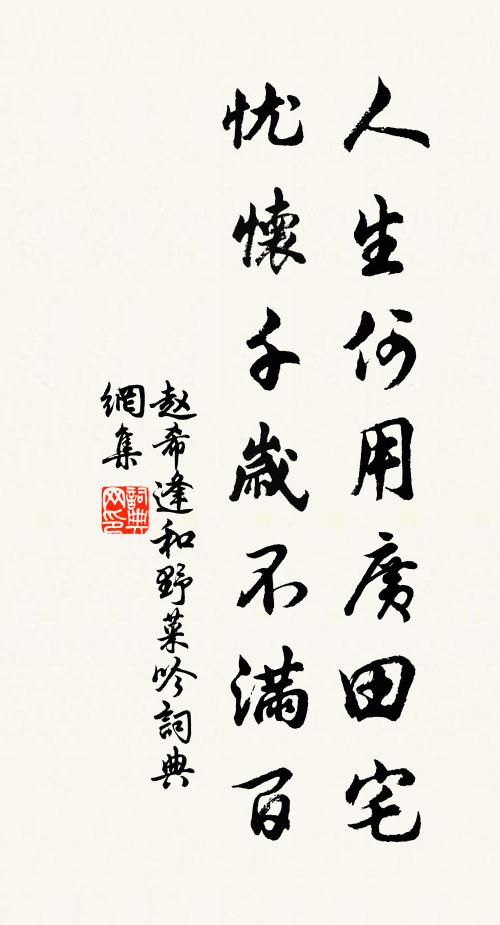 人生何用廣田宅
忧懷千歲不满百
赵希逢和野菜吟詞典
網集
詞典
网印